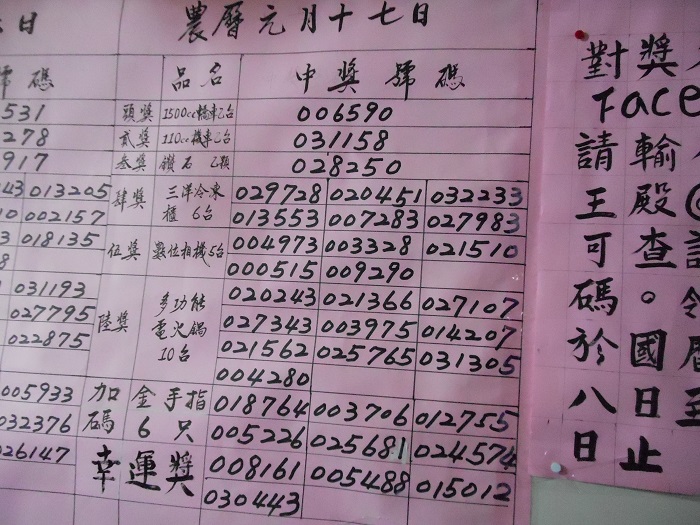 日
農曆元月十七日
號碼
品名
中獎號碼
531
頭獎 1500cc轎車乙台 006590
278
貳獎 110cc機車乙台 031158
917
叁獎 鑽石乙顆 028250
43 013205
肆獎 三洋冷凍
櫃 6台
029728 020451 032233
0 002157
013553 007283 027983
3 018135
伍獎 數位相機5台
004973 003328 021510
8
000515 009290
031193
陸獎 多功能
電火鍋
10台
020243 021366 027107
027795
027343 003975 014207
022875
021562 025765 031305
004280
005933
加碼 金手指
6只
018764 003706 012755
032376
005226 025681 024574
026147
幸運獎
008161 005488 015012
030443
對獎
Face
請輸
王殿@
可查
碼。
於國曆
八日至
日止